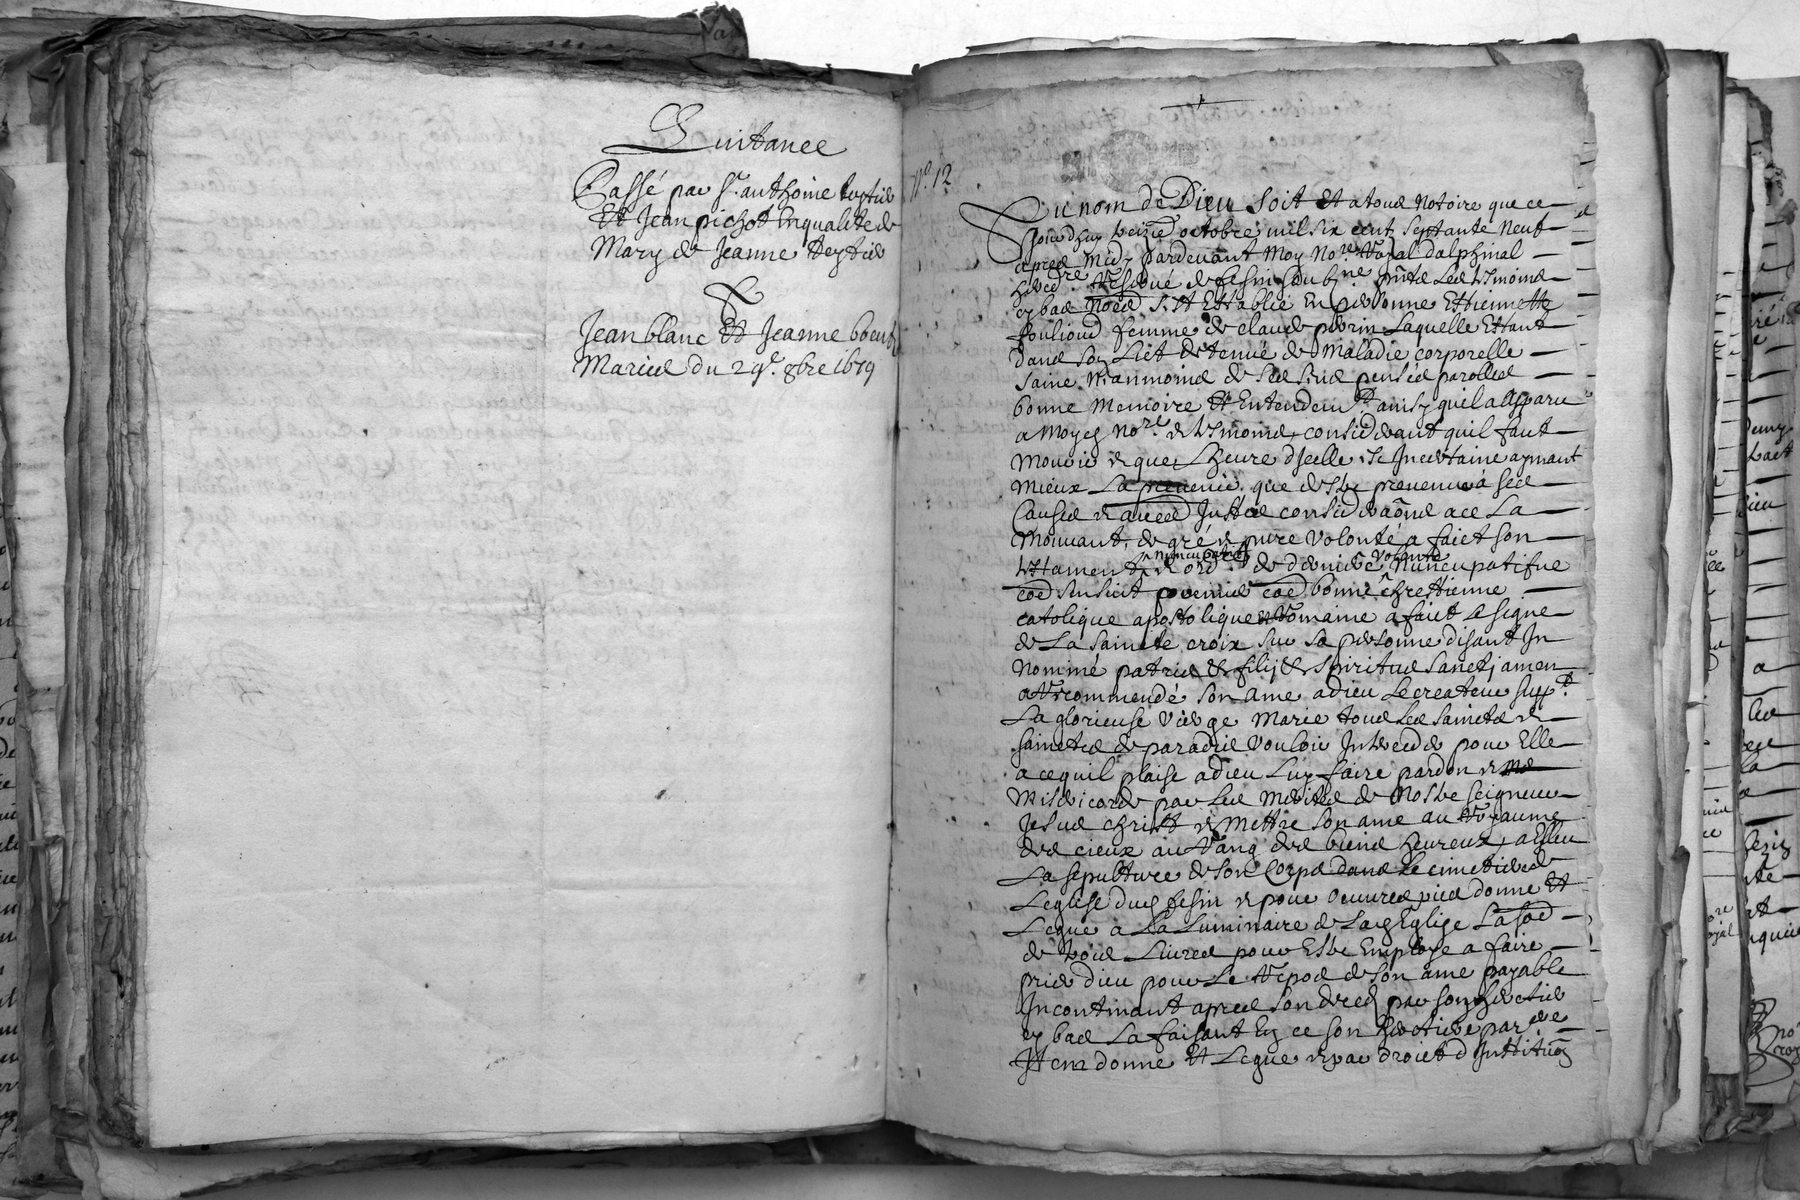 Quittance
Passé par Sr. anthoine teytie
Et Jean pichot En qualite de
Mary de Jeanne teytie
Et
Jean blanc Et Jeanne boeuf
Maries du 29e. 8bre 1679
No. 12
Au nom de Dieu soit Et a tous Notoire que ce
Jourdhuy seizie octobre mil six cent septante Neuf
apres Midy pardevant Moy Nore Royal dalphinal
hered.re Resigné de fesin soubne. pntz Les tesmoins
bas noes s'est Establie En personne Ethiennette
foulioud femme de claude perrin Laquelle Estant
dans son Lict detenue de Maladie corporelle
saine Neanmoins de ses sens pensées parolles
bonne Memoire Et Entendemt ainsy quel a apparu
a Moyd Nore & tesmoins, considerant quil faut
Mourir & que Lheure dicelle Est Incertaine aymant
Mieux La prevenir que destre prevenue a ses
Causes & auees Justes consideraõns a ce La
Mouuant, de gré & pure Volonté a faict son
testament nuncupatif & ord. de derniere volonté Nuncupatifue
coe sensuit premier coe bonne chrestienne
catolique apostolique & Romaine a faict Le signe
de La saincte croix sur sa personne disant In
nomine patris & filij & spiritus sanctj amen
a Recommendé son ame a dieu Le createur suppt
La glorieuse Vierge Marie tous Les saincts &
sainctes de paradis Vouloir Interceder pour Elle
a ce quil plaise a dieu Luy faire pardon &
Misericorde par Les Merites de Nostre seigneur
Jesus christ & Mettre son ame au Royaume
des cieux au Rang des biens heureux, a Esleu
La sepulture de son Corps dans Le cimetiere de
Leglise dud fesin & pour oeuures pies donne Et
Legue à La Luminaire de Lad Eglise La soe
de trois Liures pour Estre Employe a faire
prier dieu pour Le Repos de son ame payable
Incontinant apres son deces par son heritier
bas La faisant En ce son heritiere parre
Item donne Et Legue & par droict d Institũon